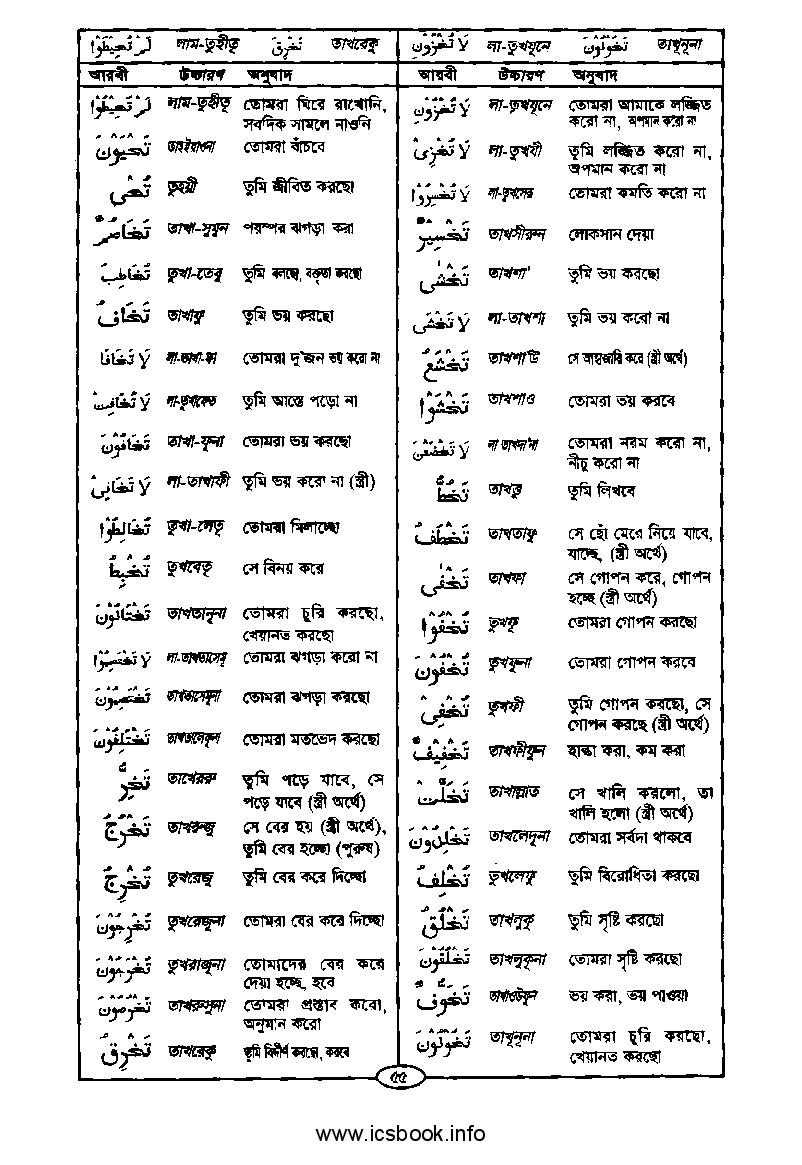 لَمْ تُحِيْطُوْا লাম-তুহীতূ تَخْرِقَ তাখরেকু لَا تُخْزُوْنِ লা-তুখযূনে تَخُوْنُوْنَ তাখূনূনা
আরবী উচ্চারণ অনুবাদ
لَمْ تُحِيْطُوْا লাম-তুহীতূ তোমরা ঘিরে রাখোনি,
সবদিক সামলে নাওনি
تَحْيَوْنَ তাহইয়াওনা তোমরা বাঁচবে
تُحْيِ তুহয়ী তুমি জীবিত করছো
تَخَاصُمُ তাখা-সুমুন পরস্পর ঝগড়া করা
تُخَاطِبْ তুখা-তেবু তুমি বলছো, বক্তৃতা করছো
تَخَافُ তাখাফু তুমি ভয় করছো
لَا تَخَافَا লা-তাখা-ফা তোমরা দু'জন ভয় করো না
لَا تُخَافِتْ লা-তুখাফেত তুমি আস্তে পড়ো না
تَخَافُوْنَ তাখা-ফূনা তোমরা ভয় করছো
لَا تَخَافِيْ লা-তাখাফী তুমি ভয় করো না (স্ত্রী)
تُخَالِطُوْا তুখা-লেতূ তোমরা মিলাচ্ছো
تُخْبِطُ তুখবেতু সে বিনয় করে
تَخْتَانُوْنَ তাখতানূনা তোমরা চুরি করছো,
খেয়ানত করছো
لَا تَخْتَصِمُوْا লা-তাখতাসেমূ তোমরা ঝগড়া করো না
تَخْتَصِمُوْنَ তাখতাসেমূনা তোমরা ঝগড়া করছো
تَخْتَلِفُوْنَ তাখতালেফূনা তোমরা মতভেদ করছো
تَخِرُّ তাখেররু তুমি পড়ে যাবে, সে
পড়ে যাবে (স্ত্রী অর্থে)
تَخْرُجُ তাখরুজু সে বের হয় (স্ত্রী অর্থে),
তুমি বের হচ্ছো (পুরুষ)
تُخْرِجُ তুখরেজু তুমি বের করে দিচ্ছো
تُخْرِجُوْنَ তুখরেজূনা তোমরা বের করে দিচ্ছো
تُخْرَجُوْنَ তুখরাজূনা তোমাদের বের করে
দেয়া হচ্ছে, হবে
تَخْرُصُوْنَ তাখরুসূনা তোমরা প্রস্তাব করো,
অনুমান করো
تَخْرِقُ তাখরেকু তুমি বিদীর্ণ করছো, করবে
আরবী উচ্চারণ অনুবাদ
لَا تُخْزُوْنِ লা-তুখযূনে তোমরা আমাকে লজ্জিত
করো না, অপমান করো না
لَا تُخْزِيْ লা-তুখযী তুমি লজ্জিত করো না,
অপমান করো না
لَا تُخْسِرُوْا লা-তুখসেরূ তোমরা কমতি করো না
تَخْسِيْرٌ তাখসীরুন লোকসান দেয়া
تَخْشٰى তাখশা' তুমি ভয় করছো
لَا تَخْشٰى লা-তাখশা তুমি ভয় করো না
تَخْشَعُ তাখশাউ সে আহাজারি করে (স্ত্রী অর্থে)
تَخْشَوْا তাখশাও তোমরা ভয় করবে
لَا تَخْضَعْنَ লা তাখদা'না তোমরা নরম করো না,
নীচু করো না
تَخُطُّ তাখুত্তু তুমি লিখবে
تَخْطَفُ তাখতাফু সে ছোঁ মেরে নিয়ে যাবে,
যাচ্ছে, (স্ত্রী অর্থে)
تَخْفٰى তাখফা সে গোপন করে, গোপন
হচ্ছে (স্ত্রী অর্থে)
تُخْفُوْا তুখফূ তোমরা গোপন করছো
تُخْفُوْنَ তুখফূনা তোমরা গোপন করবে
تُخْفِيْ তুখফী তুমি গোপন করছো, সে
গোপন করছে (স্ত্রী অর্থে)
تَخْفِيْفٌ তাখফীফুন হাল্কা করা, কম করা
تَخَلَّتْ তাখাল্লাত সে খালি করলো, তা
খালি হলো (স্ত্রী অর্থে)
تَخْلُدُوْنَ তাখলোদূনা তোমরা সর্বদা থাকবে
تُخْلِفُ তুখলেফু তুমি বিরোধিতা করছো
تَخْلُقُ তাখলুকু তুমি সৃষ্টি করছো
تَخْلُقُوْنَ তাখলুকূনা তোমরা সৃষ্টি করছো
تَخَوُّفٌ তাখাওউফুন ভয় করা, ভয় পাওয়া
تَخُوْنُوْنَ তাখূনূনা তোমরা চুরি করছো,
খেয়ানত করছো
৫৫
www.icsbook.info